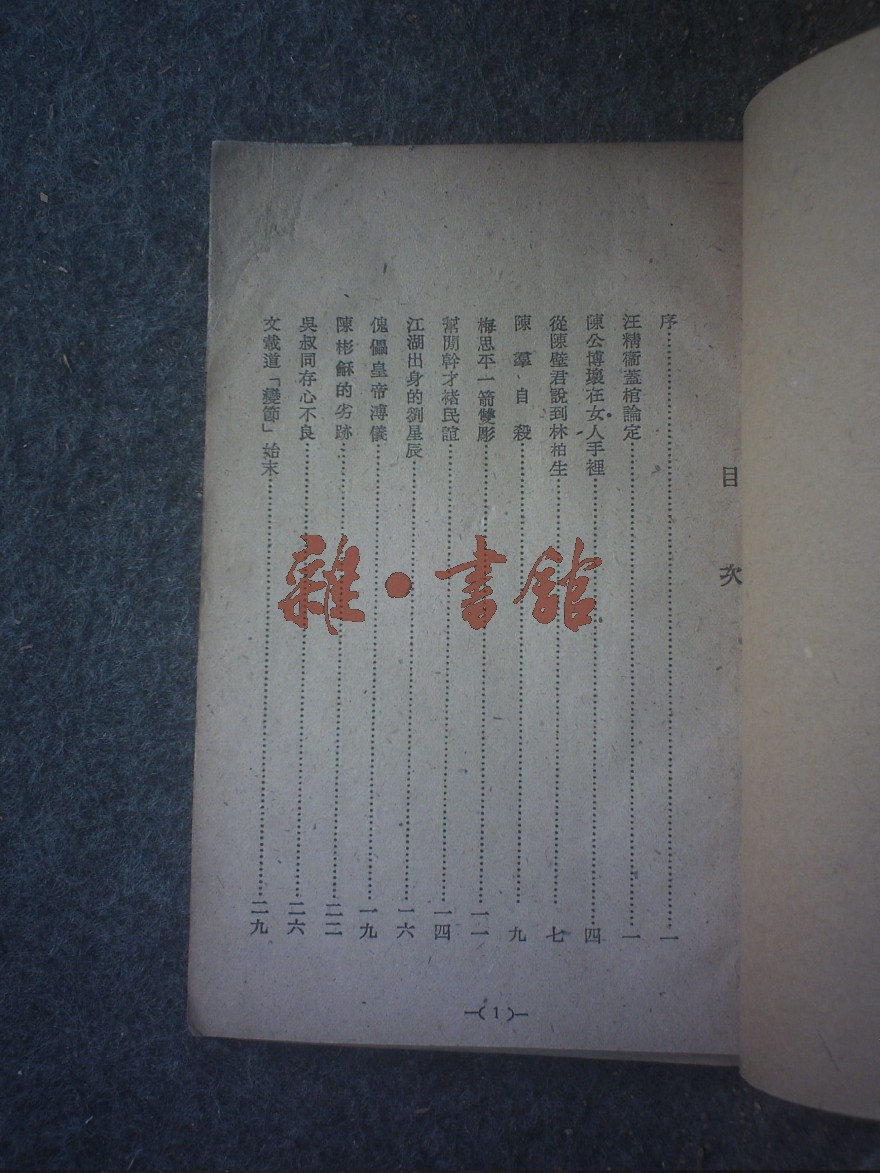 目次
序……一
汪精衞蓋棺論定……一
陳公博壞在女人手裡……四
從陳璧君說到林柏生……七
陳羣自殺……九
梅思平一箭雙彫……一二
幫閒幹才褚民誼……一四
江湖出身的劉星辰……一六
傀儡皇帝溥儀……一九
陳彬龢的劣跡……二二
吳叔同存心不良……二六
文載道「變節」始末……二九
—(1)—
雜·書館